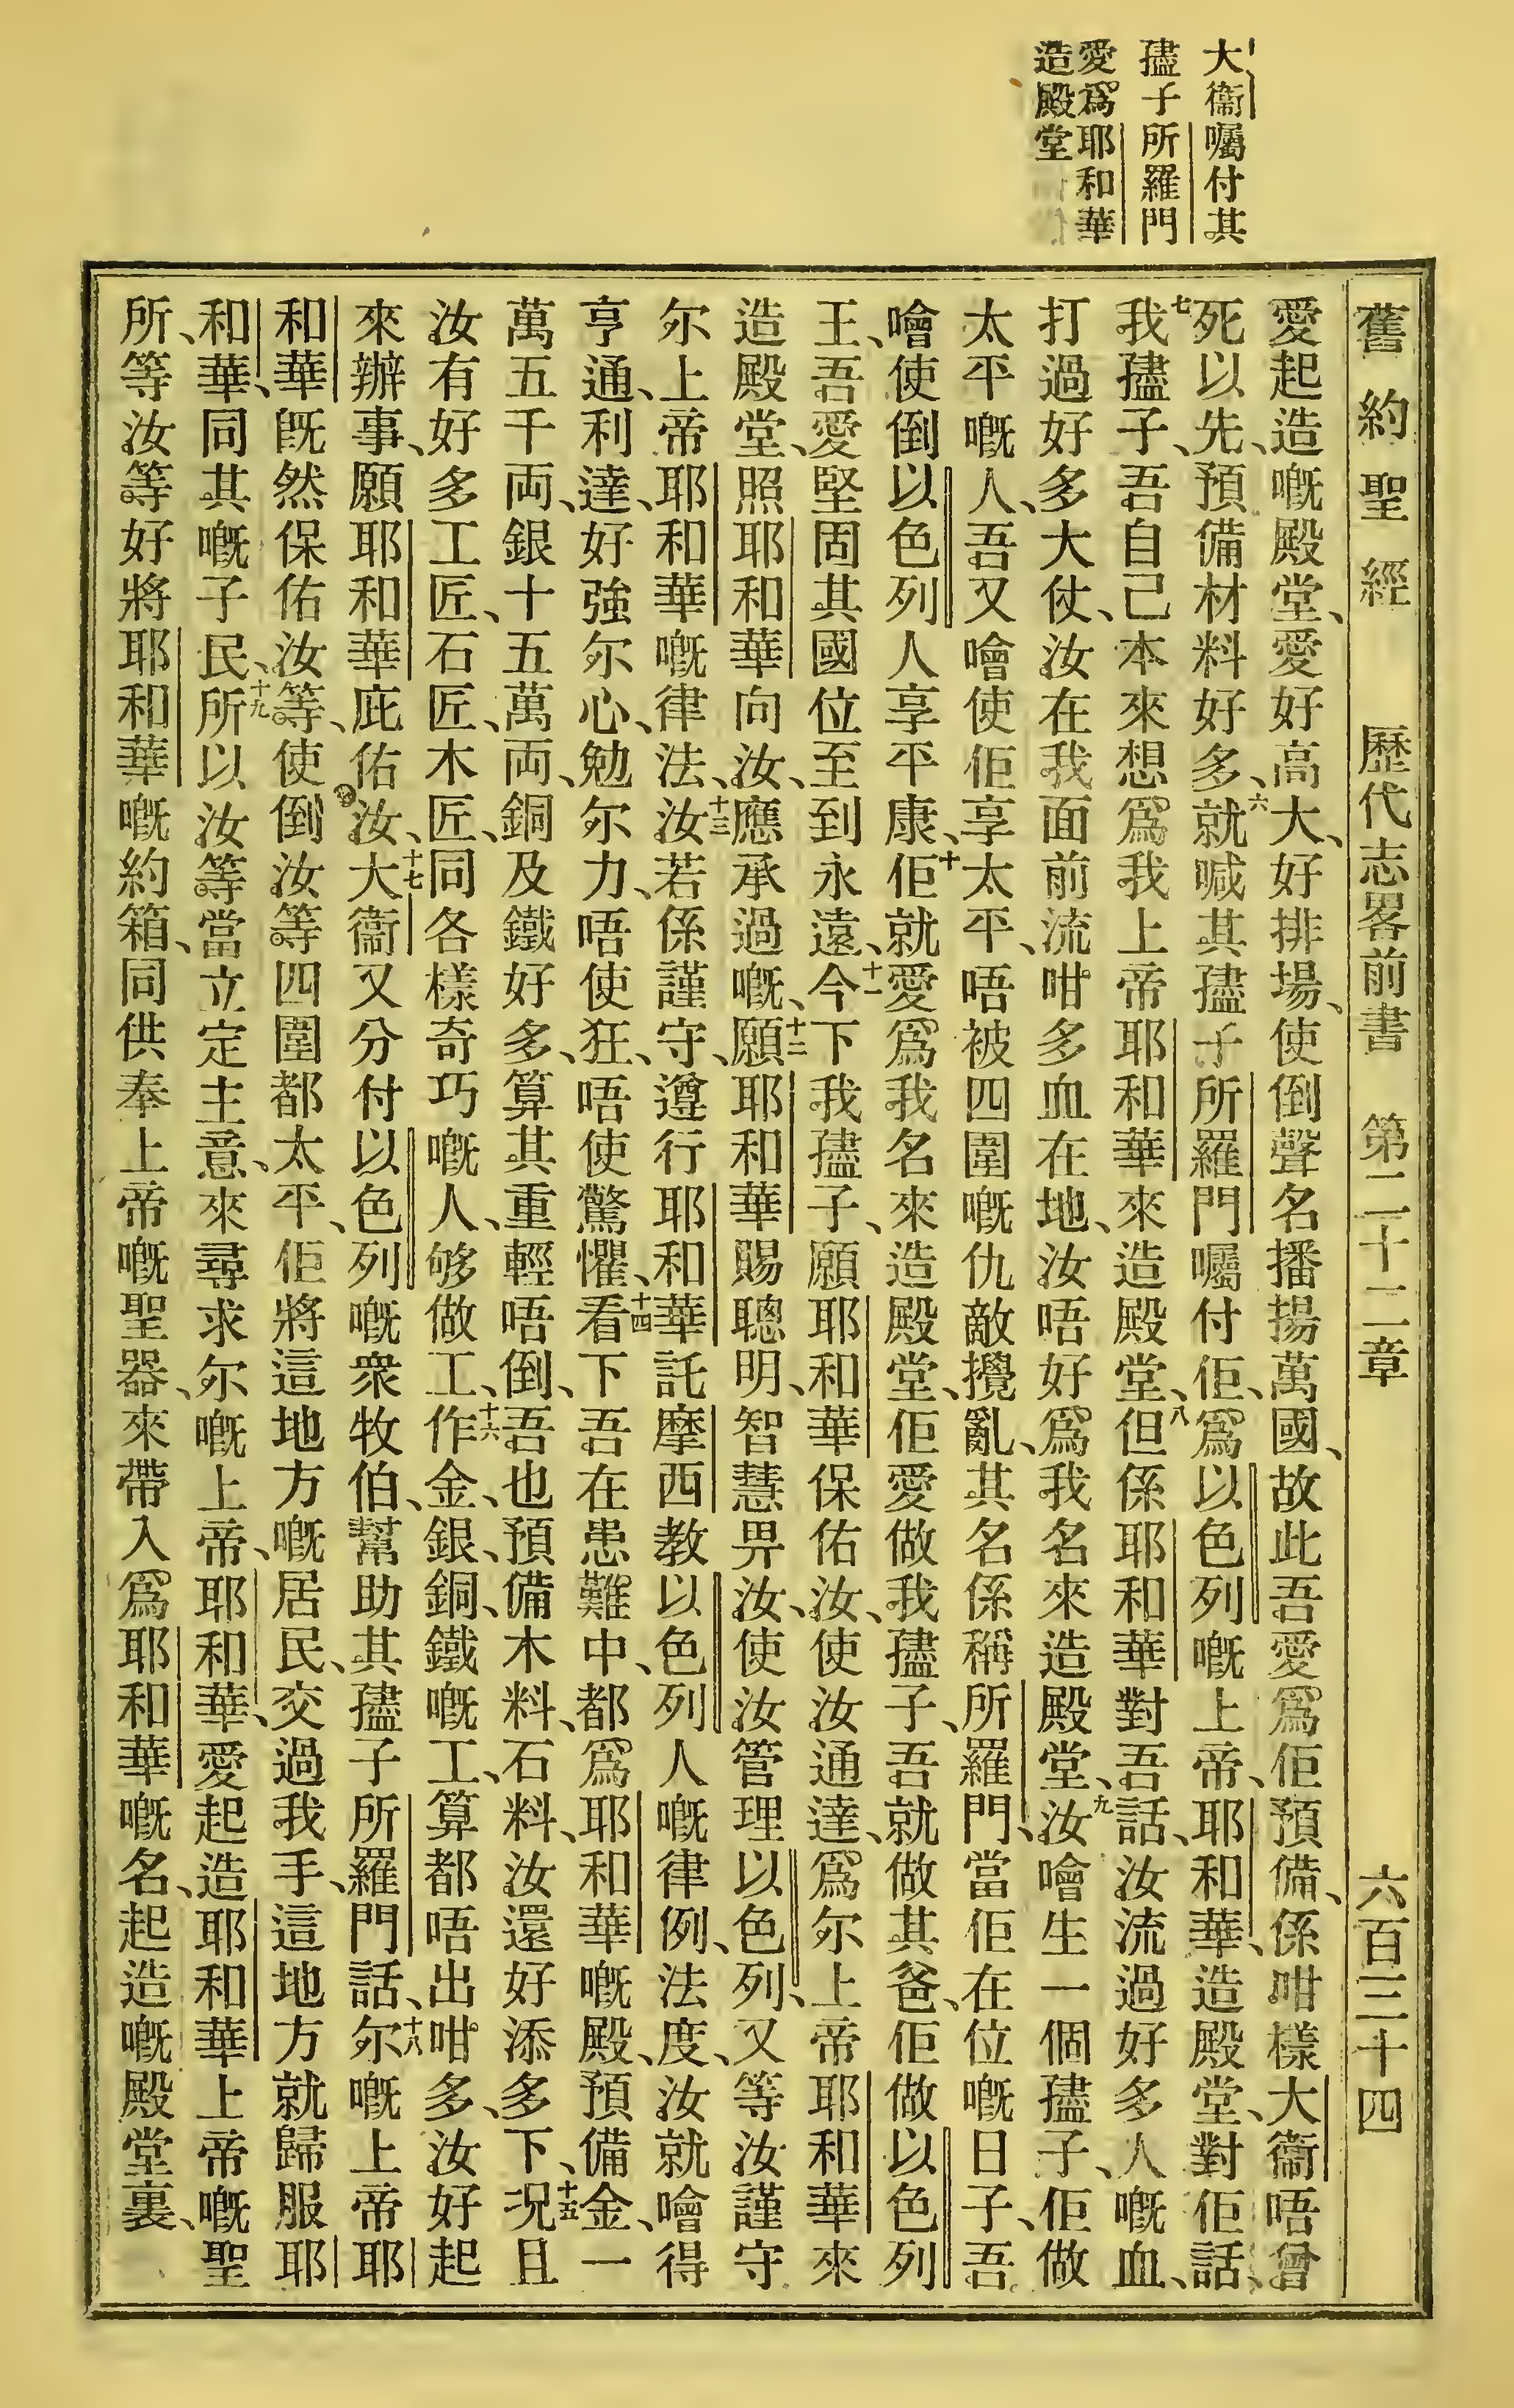 大衞囑付其
孻子所羅門
愛爲耶和華
造殿堂
舊約聖經 歷代志畧前書 第二十二章 六百三十四
愛起造嘅殿堂、愛好高大、好排場、使倒聲名播揚萬國、故此吾愛爲佢預備、係咁樣大衞唔曾
死以先、預備材料好多、六就喊其孻子所羅門囑付佢、爲以色列嘅上帝、耶和華、造殿堂、對佢話、
七我孻子、吾自己本來想爲我上帝耶和華來造殿堂、八但係耶和華對吾話、汝流過好多人嘅血、
打過好多大仗、汝在我面前流咁多血在地、汝唔好爲我名來造殿堂、九汝噲生一個孻子、佢做
太平嘅人、吾又噲使佢享太平、唔被四圍嘅仇敵攪亂、其名係稱所羅門、當佢在位嘅日子、吾
噲使倒以色列人享平康、十佢就愛爲我名來造殿堂、佢愛做我孻子、吾就做其爸、佢做以色列
王、吾愛堅固其國位至到永遠、十一今下我孻子、願耶和華保佑汝、使汝通達、爲尔上帝耶和華來
造殿堂、照耶和華向汝、應承過嘅、十二願耶和華賜聰明、智慧畀汝、使汝管理以色列、又等汝謹守
尔上帝耶和華嘅律法、十三汝若係謹守、遵行耶和華託摩西教以色列人嘅律例、法度、汝就噲得
亨通、利達、好強尔心、勉尔力、唔使狂、唔使驚懼、十四看下吾在患難中、都爲耶和華嘅殿、預備金、一
萬五千両、銀十五萬両、銅及鐵好多、算其重輕唔倒、吾也預備木料、石料、汝還好添多下、十五况且
汝有好多工匠、石匠、木匠、同各樣奇巧嘅人、够做工、十六作金、銀、銅、鐵嘅工、算都唔出咁多、汝好起
來辦事、願耶和華庇佑汝、十七大衞又分付以色列嘅衆牧伯、幫助其孻子所羅門話、十八尔嘅上帝耶
和華旣然保佑汝等、使倒汝等四圍都太平、佢將這地方嘅居民、交過我手、這地方就歸服耶
和華、同其嘅子民、十九所以汝等當立定主意、來尋求尔嘅上帝、耶和華、愛起造耶和華上帝嘅聖
所、等汝等好將耶和華嘅約箱、同供奉上帝嘅聖器、來帶入爲耶和華嘅名、起造嘅殿堂裏、